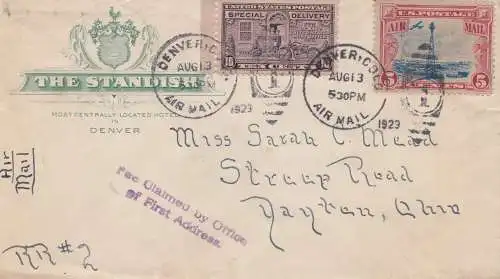 THE STANDISH
MOST CENTRALLY LOCATED HOTEL
IN
DENVER
UNITED STATES POSTAGE
SPECIAL DELIVERY
10
U.S. POSTAGE
AIR MAIL
5
DENVER, COLO.
AUG 13
AIR MAIL
1929
DENVER, COLO.
AUG 13
5 30 PM
AIR MAIL
1929
Air
Mail
Miss Sarah C. Mead
Stroop Road
Dayton, Ohio
Fee Claimed by Office
of First Address.
RR#2